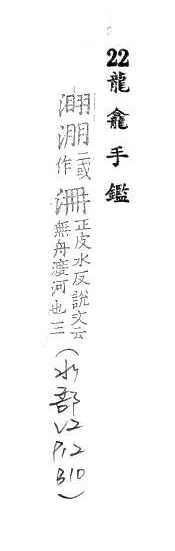 22龍龕手鑑
𣶈淜二或作𣶈正皮水反說文云無舟渡河也三
(水部V2 P12 B10)